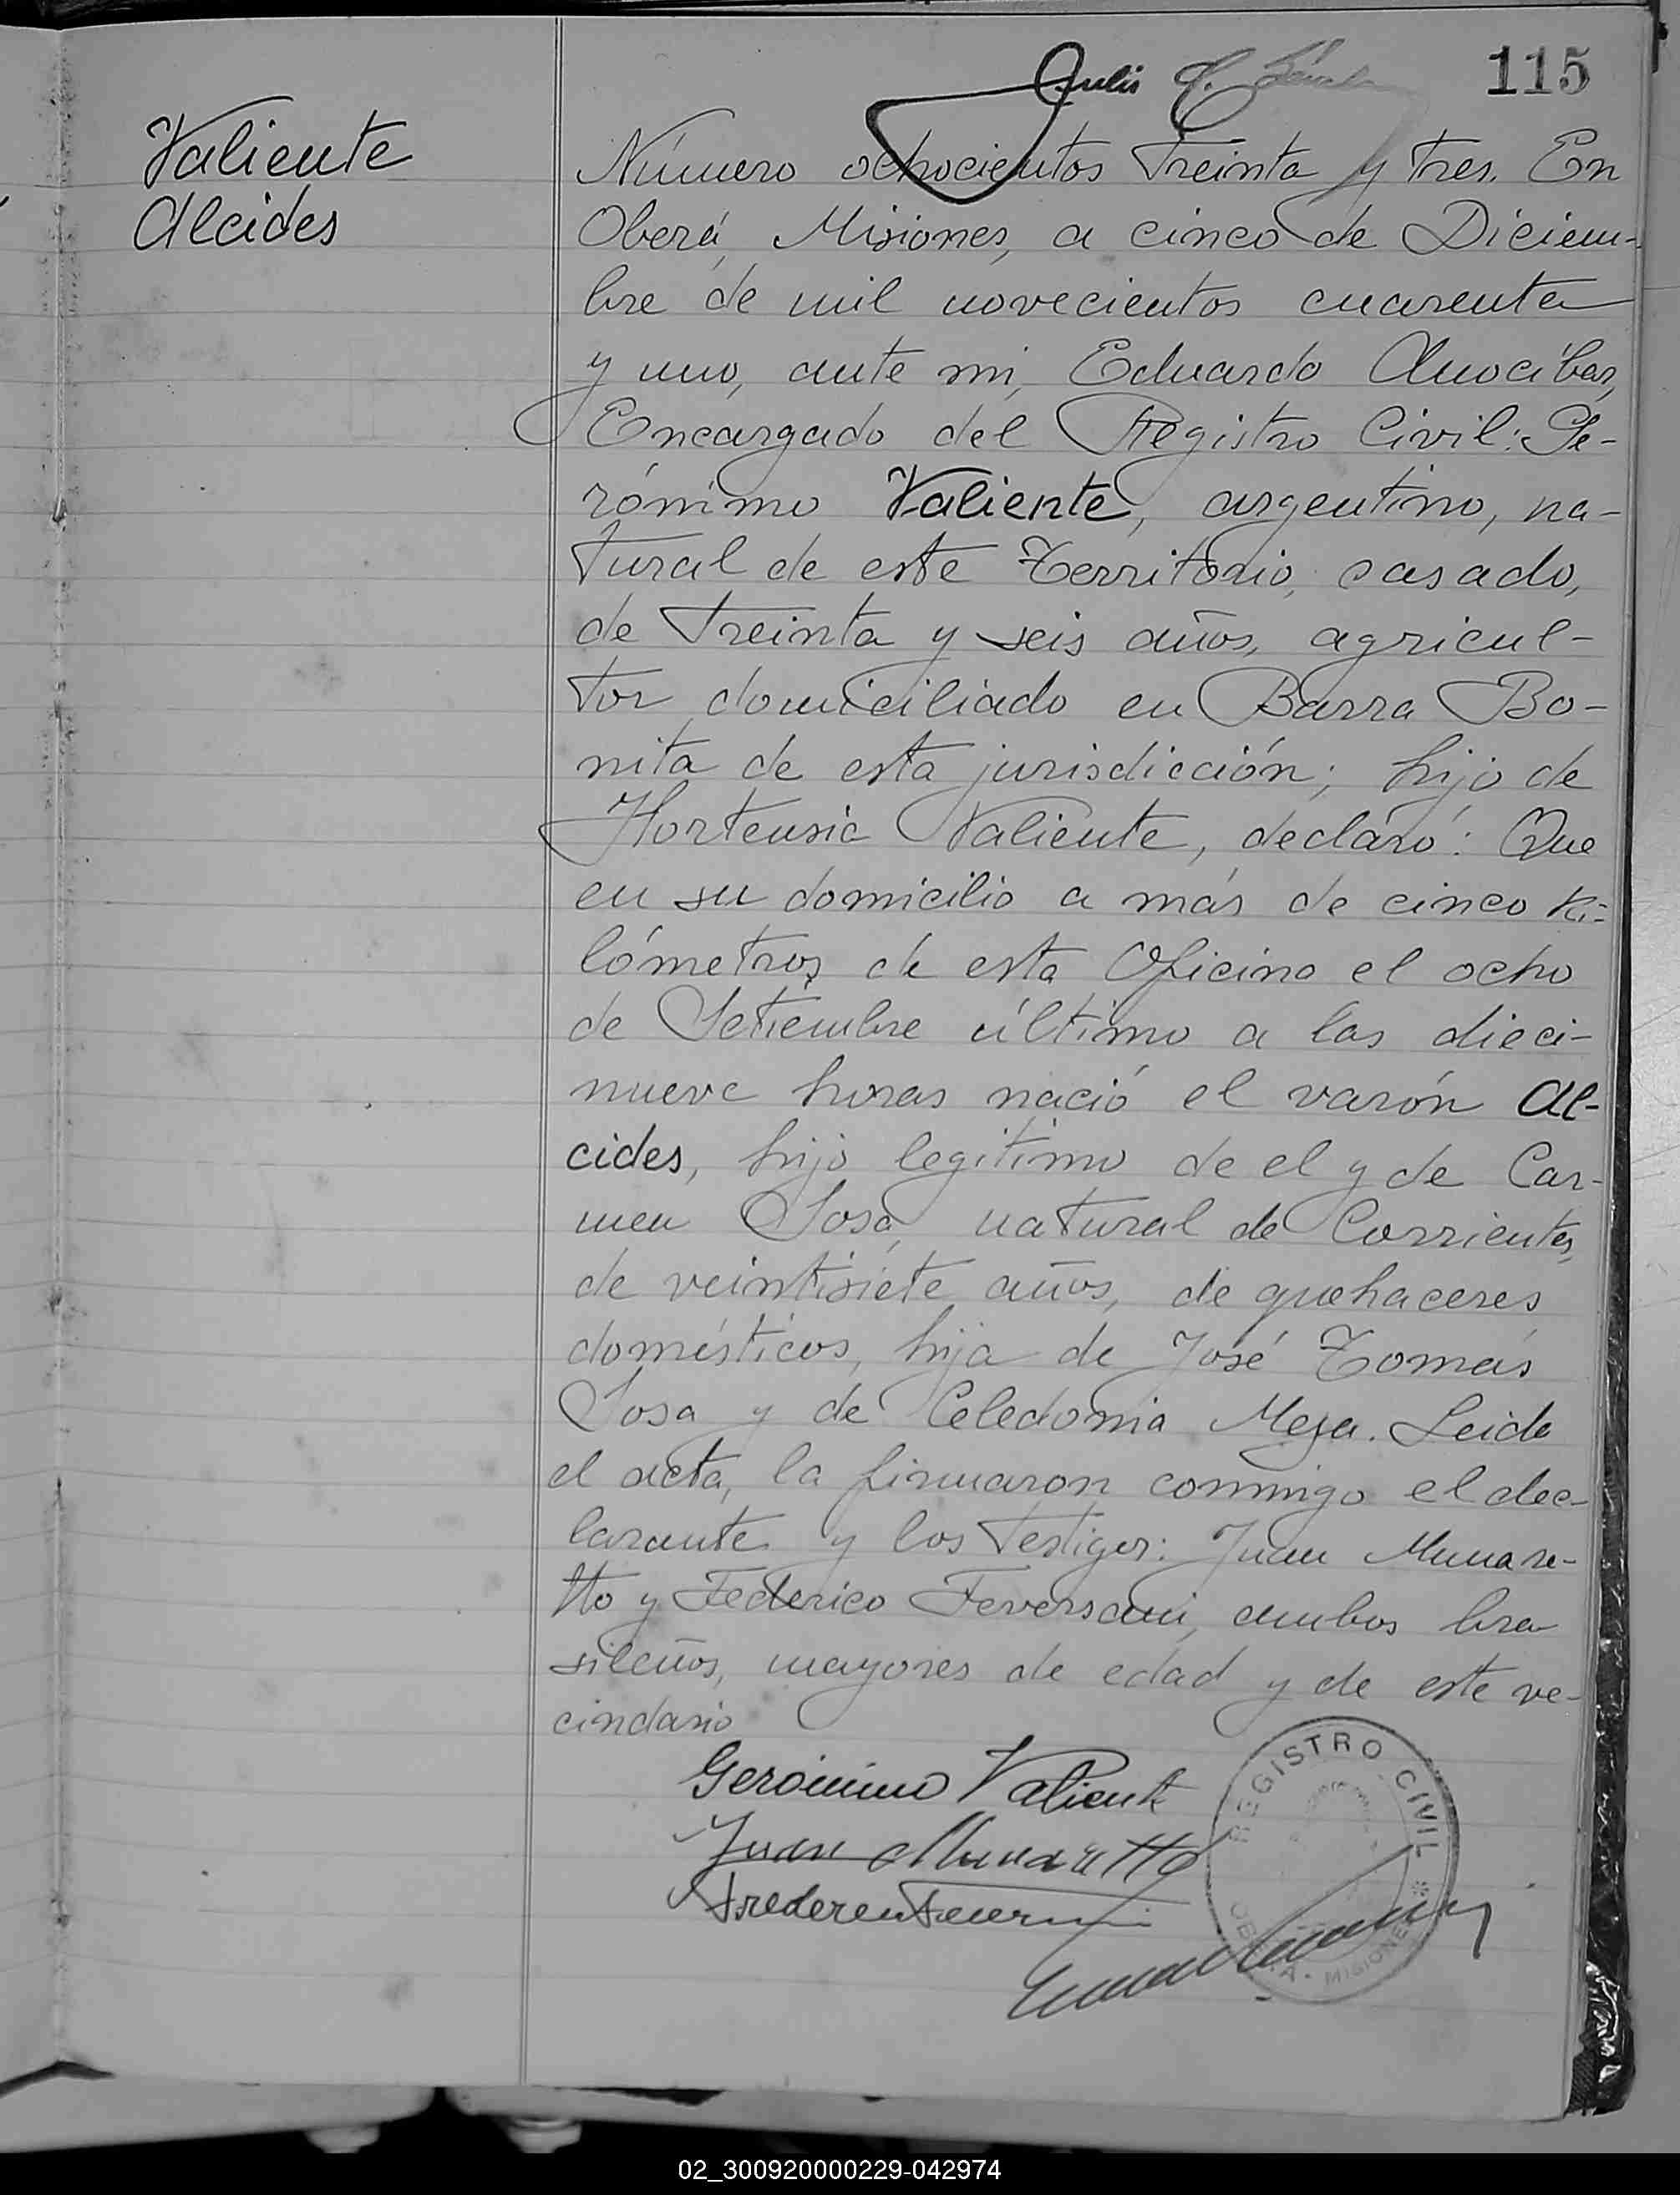 115
Valiente
Alcides
Número ochocientos treinta y tres. En
Oberá, Misiones, a cinco de Diciem-
bre de mil novecientos cuarenta
y uno, ante mi, Eduardo Anocíbar,
Encargado del Registro Civil: Ge-
rónimo Valiente, argentino, na-
tural de este Territorio, casado,
de treinta y seis años, agricul-
tor domiciliado en Barra Bo-
nita de esta jurisdicción; hijo de
Hortensia Valiente, declaró: Que
en su domicilio a más de cinco ki-
lómetros de esta Oficina el ocho
de Setiembre último a las dieci-
nueve horas nació el varón Al-
cides, hijo legítimo de el y de Car-
men Sosa, natural de Corrientes,
de veintisiete años, de quehaceres
domésticos, hija de José Tomás
Sosa y de Celedonia Meza. Leida
el acta, la firmaron conmigo el dec-
larante y los testigos: Juan Munare-
tto y Federico Feversani, ambos bra
sileños, mayores de edad y de este ve-
cindario
Geronimo Valiente
Juan Munaretto
REGISTRO CIVIL
OBERÁ - MISIONES
02_300920000229-042974